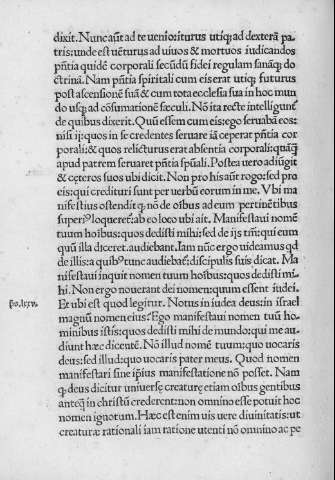 dixit. Nunc aūt ad te uenio: iturus utiq; ad dexterā pa
tris: unde est uēturus ad uiuos & mortuos iudicandos
pñtia quidē corporali secūdū fidei regulam sanāq; do
ctrinā. Nam pñtia spiritali cum eis erat utiq; futurus
post ascensionē suā & cum tota ecclesia sua in hoc mun
do usq; ad cōsumationē sæculi. Nō ita recte intelligunt̄
de quibus dixerit. Quū essem cum eis: ego seruabā eos:
nisi ij: quos in se credentes seruare iā ceperat pñtia cor
porali: & quos relicturus erat absentia corporali: quatꝗ
apud patrem seruaret pñtia spūali. Postea uero adiūgit
& cęteros suos ubi dicit. Non pro his aūt rogo: sed pro
eis: qui credituri sunt per uerbū eorum in me. Vbi ma
nifestius ostendit ꝙ nō de oībus ad cum pertinētibus
superiꝰ loqueret̄: ab eo loco ubi ait. Manifestaui nomē
tuum hoībus: quos dedisti mihi: sed de ijs tm̄: qui eum
quū illa diceret. audiebant. Iam nūc ergo uideamus qd
de illis: a quibꝰ tunc audiebat̄: discipulis suis dicat. Ma
nifestaui inquit nomen tuum hoībus: quos dedisti mi
hi. Non ergo nouerant dei nomen: quum essent iudei.
Et ubi est quod legitur. Notus in iudea deus: in israel
magnū nomen eius? Ego manifestaui nomen tuū ho
minibus istis: quos dedisti mihi de mundo: qui me au
diunt hæc dicentē. Nō illud nomē tuum: quo uocaris
deus: sed illud: quo uocaris pater meus. Quod nomen
manifestari sine ipius manifestatione nō posset. Nam
ꝙ deus dicitur uniuersę creaturę etiam oībus gentibus
anteq̄ in christū crederent: non omnino esse potuit hoc
nomen ignotum. Hæc est enim uis uere diuinitatis: ut
creaturæ rationali iam ratione utenti nō omnino ac pe